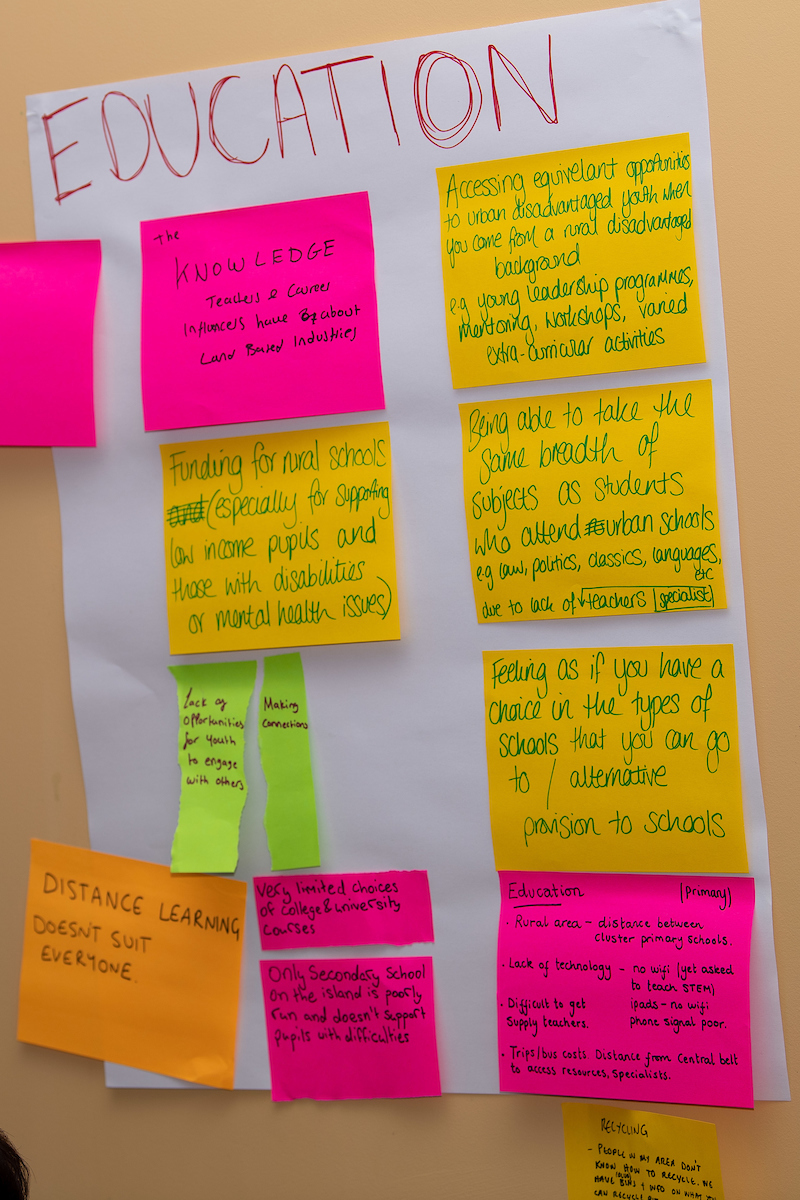 EDUCATION
The
KNOWLEDGE
Teachers & Career
Influncers have about
Land Based Industries
Accessing equivelant opportunities
to urban disadvantaged youth when
you come from a rural disadvantaged
background
e.g young leadership programmes,
mentoring, workshops, varied
extra-curricular activities
Funding for rural schools
(especially for supporting
low income pupils and
those with disabilities
or mental health issues)
Being able to take the
same breadth of
subjects as students
who attend urban schools
e.g law, politics, classics, languages,
etc
due to lack of teachers specialist
Lack of
opportunities
for youth
to engage
with others
Making
connections
Feeling as if you have a
choice in the types of
schools that you can go
to / alternative
provision to schools
DISTANCE LEARNING
DOESNT SUIT
EVERYONE.
Very limited choices
of College & University
courses
Only Secondary School
on the island is poorly
run and doesn't support
pupils with difficulties
Education (Primary)
· Rural area - distance between
cluster primary schools.
· Lack of technology - no wifi (yet asked
to teach STEM)
· Difficult to get ipads - no wifi
Supply teachers. phone signal poor.
· Trips/bus costs. Distance from Central belt
to access resources, specialists.
RECYCLING
- PEOPLE IN MY AREA DON'T
KNOW HOW TO RECYCLE. WE
HAVE BINS & INFO ON WHAT
CAN RECYCLE